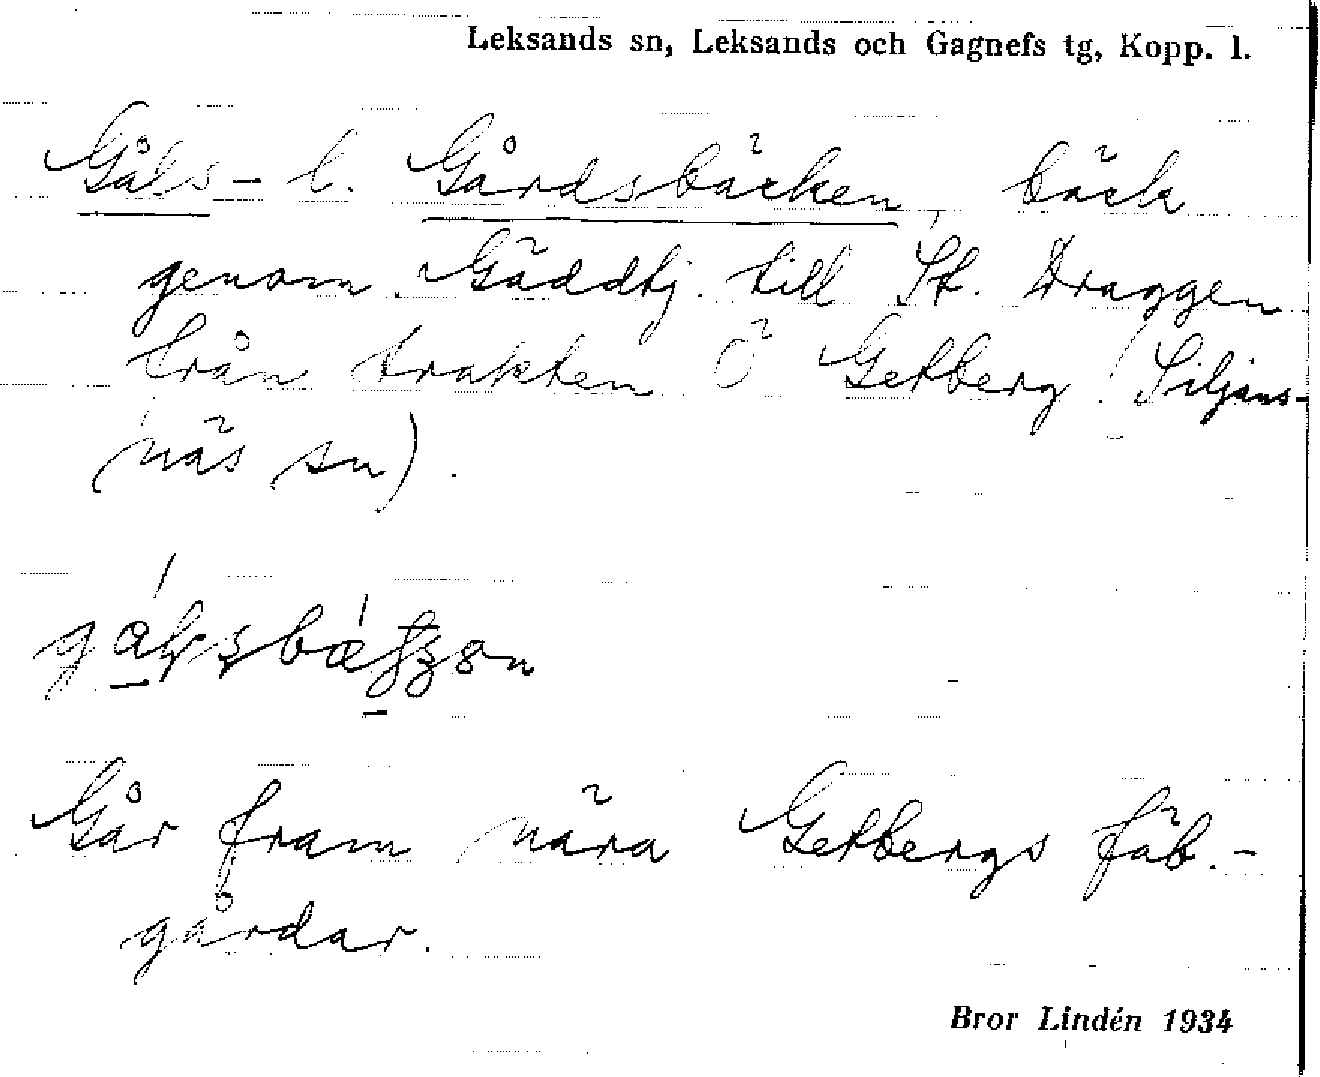 Leksands sn, Leksands och Gagnefs tg, Kopp. l.
Gåls- l. Gårdsbäcken, bäck
genom Gäddtj. till St. Draggen
från trakten Ö Getberg (Siljans-
näs sn).
Går fram nära Getbergs fäb.-
gårdar.
Bror Lindén 1934